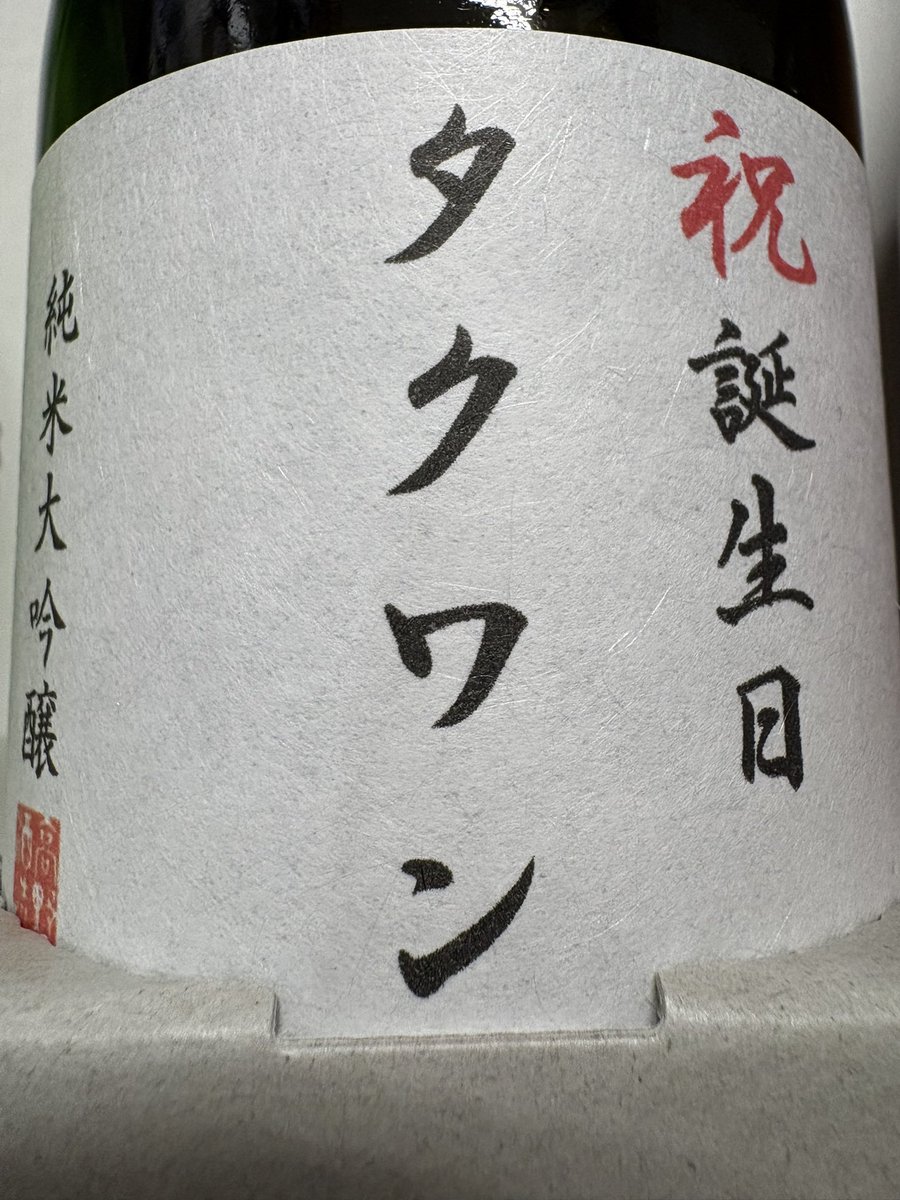 祝誕生日
タクワン
純米大吟醸